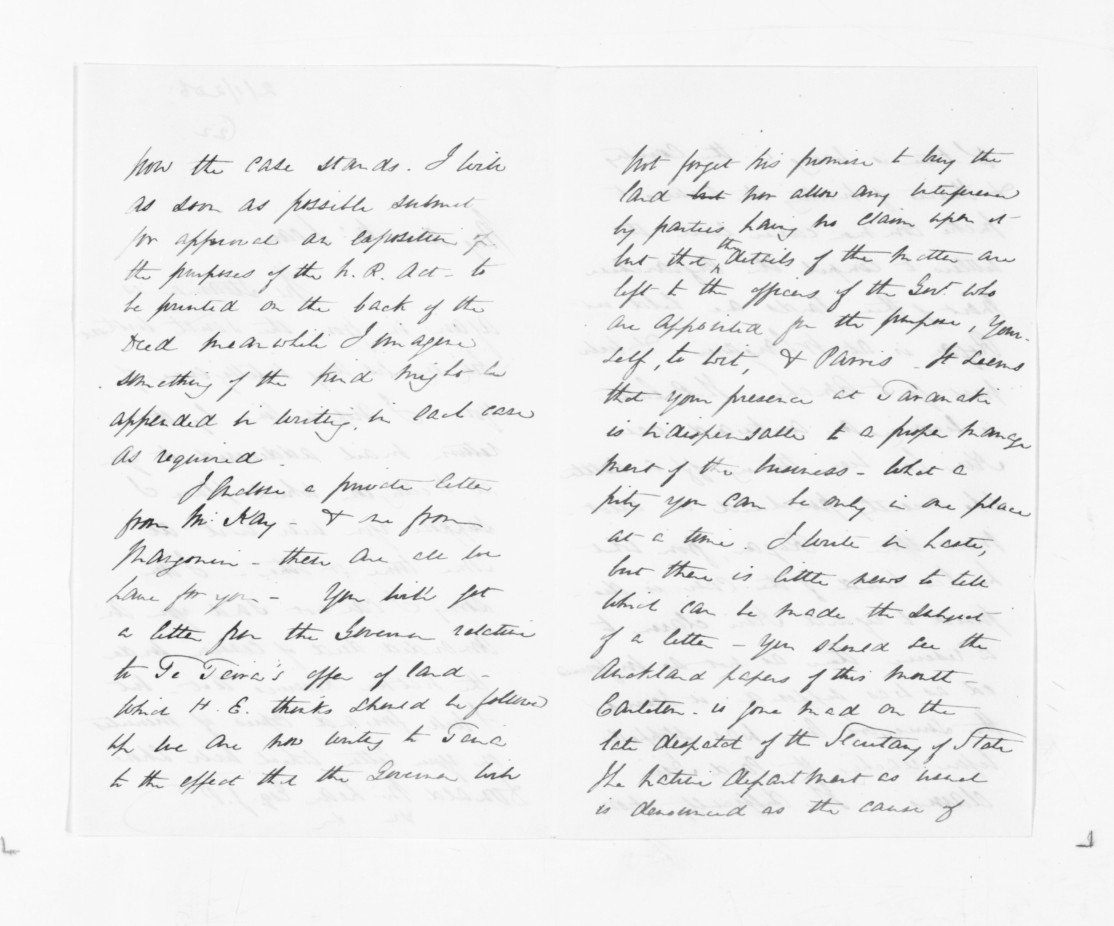 how the case stands. I will
as soon as possible submit
for approval an exposition of
the purposes of the N. R. Act - to
be printed on the back of the
Deed meanwhile I imagine
something of the kind might be
appended in writing, in each case
as required.
I enclose a private letter
from Mr Kay - & one from
- these are all we
have for you - You will get
a letter from the Governor relative
to Te Teira's offer of land -
which H. E. thinks should be followed
up we are now writing to Teira
to the effect that the Governor will
not forget his promise to buy the
land but nor allow any interference
by parties having no claim upon it
but that the details of the matter are
left to the officers of the Govt. who
are appointed for the purpose, Your-
self, to wit, & Parris. It seems
that your presence at Taranaki
is indispensable to a proper manage
ment of the business - What a
pity you can be only in one place
at a time. I write in haste,
but there is little news to tell
which can be made the subject
of a letter - You should see the
Auckland papers of this month -
Carleton - is gone mad on the
late despatch of the Secretary of State
The Native department as usual
is denounced as the cause of